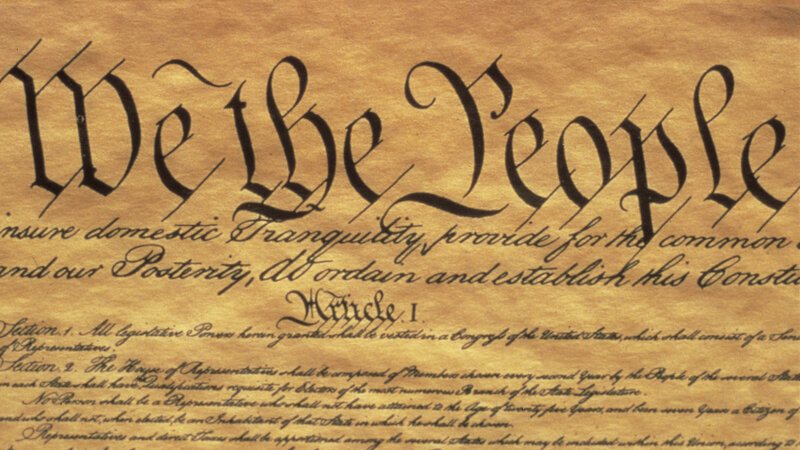 We the People
insure domestic Tranquility, provide for the common
and our Posterity, do ordain and establish this Consti
Article. I.
Section. 1. All legislative Powers herein granted shall be vested in a Congress of the United States, which shall consist of a Sen
of Representatives.
Section. 2. The House of Representatives shall be composed of Members chosen every second Year by the People of the several States
in each State shall have Qualifications requisite for Electors of the most numerous Branch of the State Legislature.
No Person shall be a Representative who shall not have attained to the Age of twenty five Years, and been seven Years a Citizen of
and who shall not, when elected, be an Inhabitant of that State in which he shall be chosen.
Representatives and direct Taxes shall be apportioned among the several States which may be included within this Union, according to